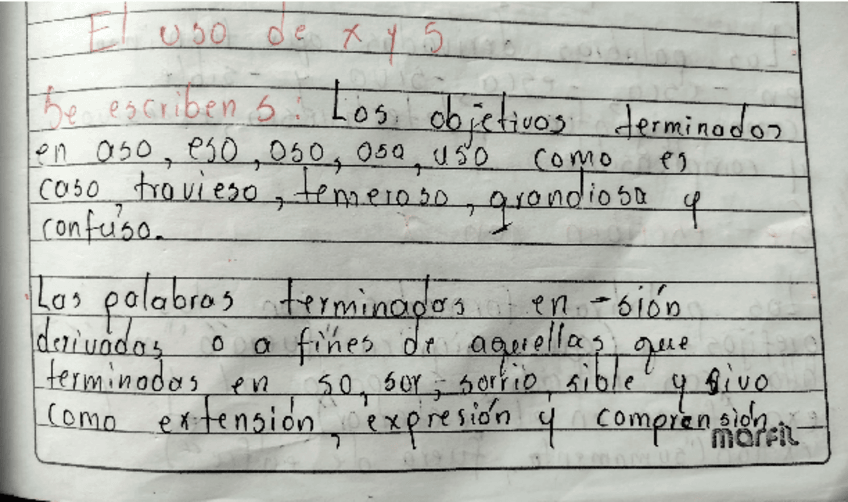 El uso de x y s
Se escriben s: Los objetivos terminados
en aso, eso, oso, osa, uso como es
caso, travieso, temeroso, grandiosa y
confuso.
Las palabras terminados en -sión
derivadas o a fines de aquellas que
terminadas en so, sor, sorrio, sible y sivo
como extensión, expresión y comprensión
marfil